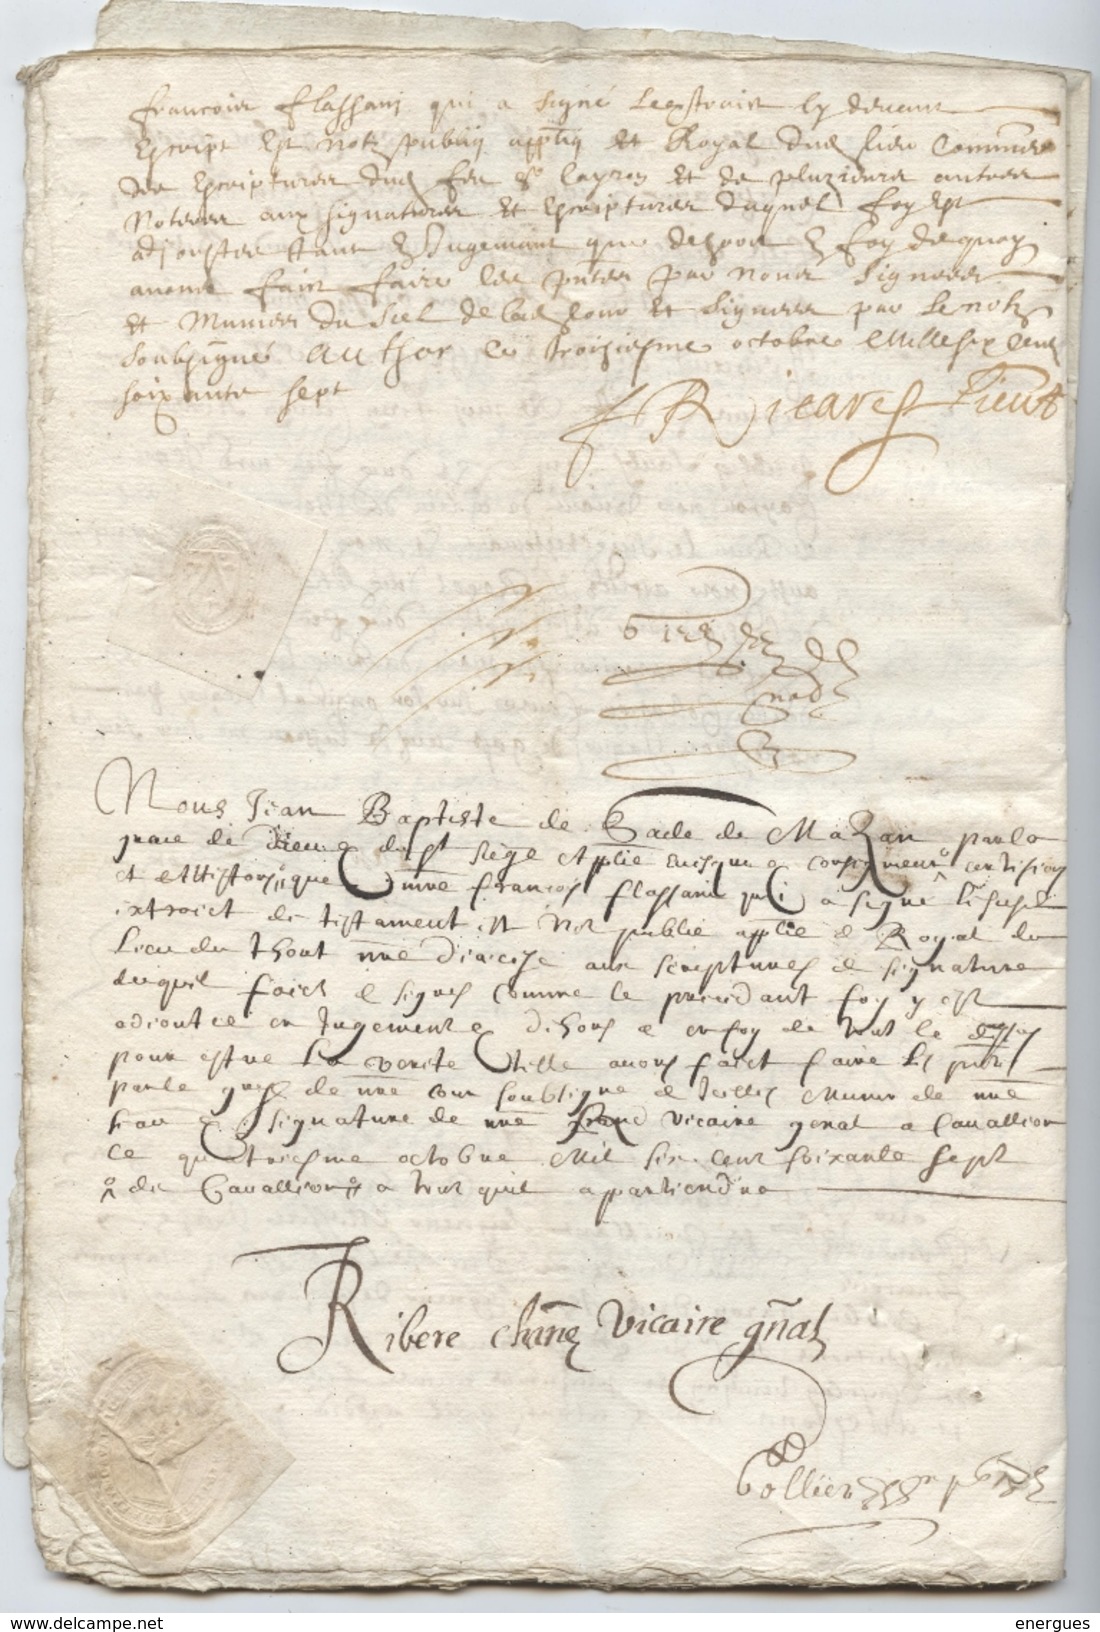 francois flassani qui a signé lextraict cy devant
Escript Est notr publiq applиq et Royal dud lieu comme
des Escriptures dud feu Sr Cayron Et de pluzieurs autres
noteres aux signatures Et Escriptures duquel foy Est
adjoustee tant En Jugemant que dehors En foy dequoy
avons faict faire les pntes par nous signees
et Munies du Seel de lad Cour Et signees par le notr
soubsigné au Thor ce troisiesme octobre Mille six cens
soixante sept
Ricares Lieut
Nous Jean Baptiste de Sade de Mazan par la
grace de Dieu & du St siege Applie Evesque certifions
et Attestons que Mre francois flassani qui a signe le susd
extraict de testament est Not publie applie & Royal du
Lieu du Thour nre diocize aux scriptures & signature
duquel faict & signes comme le precedant foy y est
adioutee en Jugement & dehors & en foy de tout le dessus
pour estre la verite telle avons faict faire les pntes
par le grefr de nre cour soubsigne & Icelles munir de nre
seau & signature de nre grand vicaire genal a Cavallion
ce quatriesme octobre Mil six cent soixante sept
^ de Cavallion a tous quil apartiendra
Ribere chnne Vicaire gnal
Collier
energues
delcampe.net